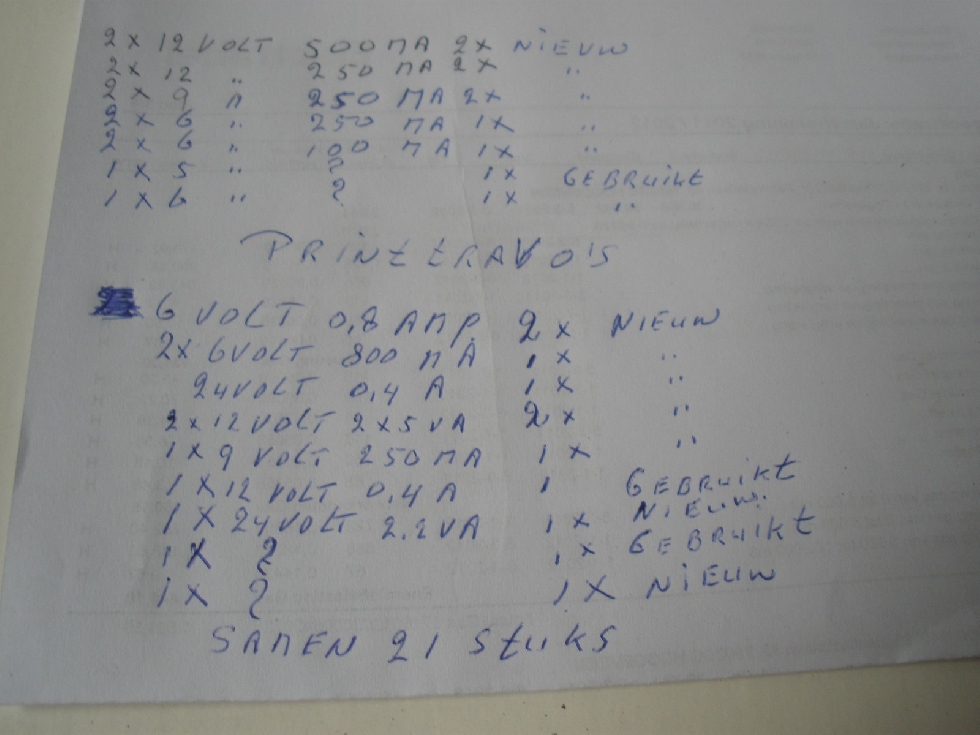 2 X 12 VOLT 500 MA 2X NIEUW
2 X 12 ,, 250 MA 2X ,,
2 X 9 ,, 250 MA 2X ,,
2 X 6 ,, 250 MA 1X ,,
2 X 6 ,, 100 MA 1X ,,
1 X 5 ,, ? 1X GEBRUIKT
1 X 6 ,, ? 1X ,,
PRINT TRAVO'S
6 VOLT 0,8 AMP. 2X NIEUW
2X 6VOLT 800 MA 1X ,,
24VOLT 0,4 A 1X ,,
2X12VOLT 2X5 VA 2X ,,
1X9 VOLT 250MA 1X ,,
1X12 VOLT 0,4A 1 GEBRUIKT
1X 24VOLT 2.2VA 1X NIEUW.
1X ? 1X GEBRUIKT
1X ? 1X NIEUW
SAMEN 21 StukS